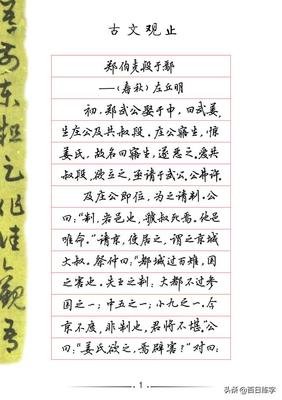 古文观止
郑伯克段于鄢
——(春秋)左丘明
初,郑武公娶于申,曰武姜,
生庄公及共叔段。庄公寤生,惊
姜氏,故名曰寤生,遂恶之。爱共
叔段,欲立之,亟请于武公,公弗许。
及庄公即位,为之请制。公
曰:“制,岩邑也,虢叔死焉。他邑
唯命。”请京,使居之,谓之京城
大叔。祭仲曰:“都城过百雉,国
之害也。先王之制:大都不过参
国之一;中五之一;小九之一。今
京不度,非制也,君将不堪。”公
曰:“姜氏欲之,焉辟害?”对曰:
1
头条@百日练字